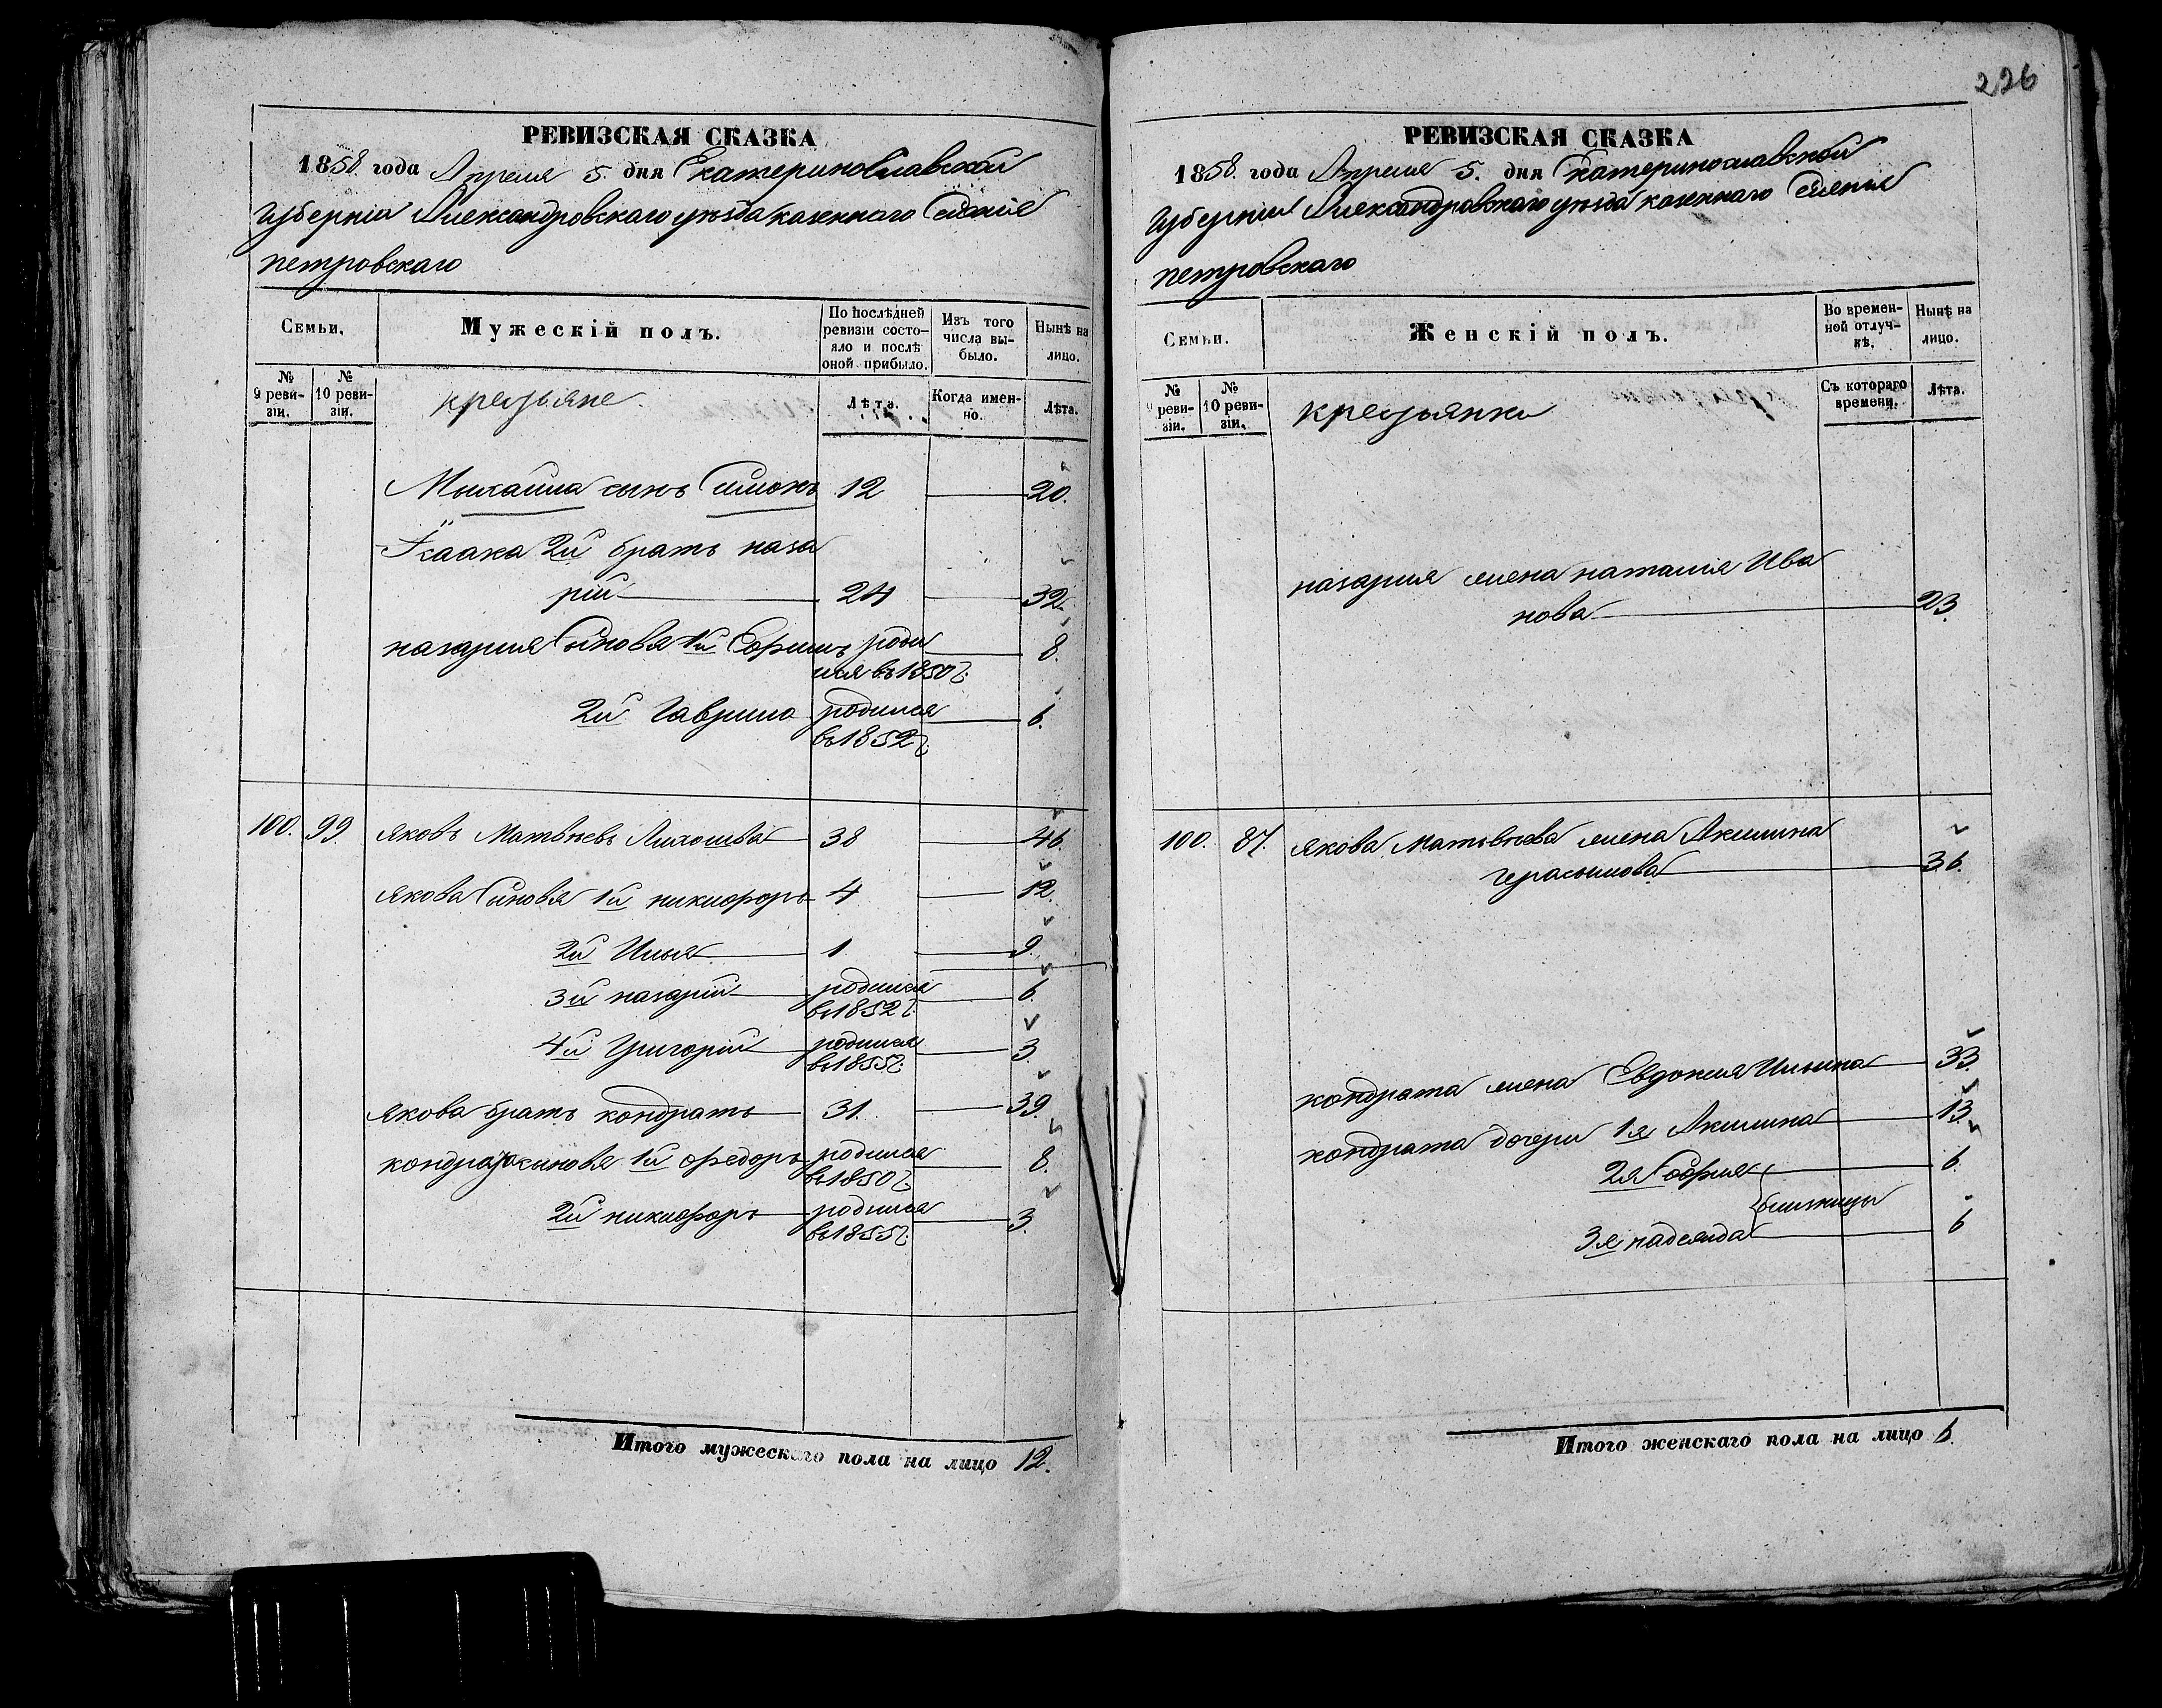 РЕВИЗСКАЯ СКАЗКА
1858. года Апреля 5. дня Екатеринославской
Губерніи Александровскаго уѣзда казеннаго Селенія
петровскаго
Семьи.
Мужескій полъ.
По послѣдней ревизіи состояло и послѣ оной прибыло.
Изъ того числа выбыло.
Нынѣ на лицо.
№ 9 ревизіи.
№ 10 ревизіи.
крестьяне.
Лѣта.
Когда именно.
Лѣта.
Михайла сынъ Симонъ 12 20.
Ісаака 2й братъ наза
рій 24 32.
назария Сыновя 1й Ефимъ роди 8.
лся въ 1850 г.
2й Гаврило родился 6.
въ 1852 г.
100. 99. яковъ Матвѣевъ 38 46.
якова Синовя 1й никифоръ 4 12.
2й Илья 1 9.
3й назарій родился 6.
въ 1852 г.
4й Григорій родился 3.
въ 1855 г.
якова братъ кондратъ 31. 39.
кондрата сыновя 1й федоръ родился 8.
въ 1850 г.
2й никифоръ родился 3.
въ 1855 г.
Итого мужескаго пола на лицо 12.
226
РЕВИЗСКАЯ СКАЗКА
1858. года Апреля 5. дня Екатеринославской
Губерніи Александровскаго уѣзда казеннаго Селенія
петровскаго
Семьи.
Женскій полъ.
Во временной отлучкѣ.
Нынѣ на лицо.
№ 9 ревизіи.
№ 10 ревизіи.
крестьянки
Съ котораго времени.
Лѣта.
назария жена наталия Ива
нова 23.
100. 87. якова Матвѣева жена Акилина
герасимова 36.
кондрата жена Евдокия Ильина 33.
кондрата дочери 1я Акилина 13.
2я София 6.
близницы
3я надежда 6
Итого женскаго пола на лицо 6.